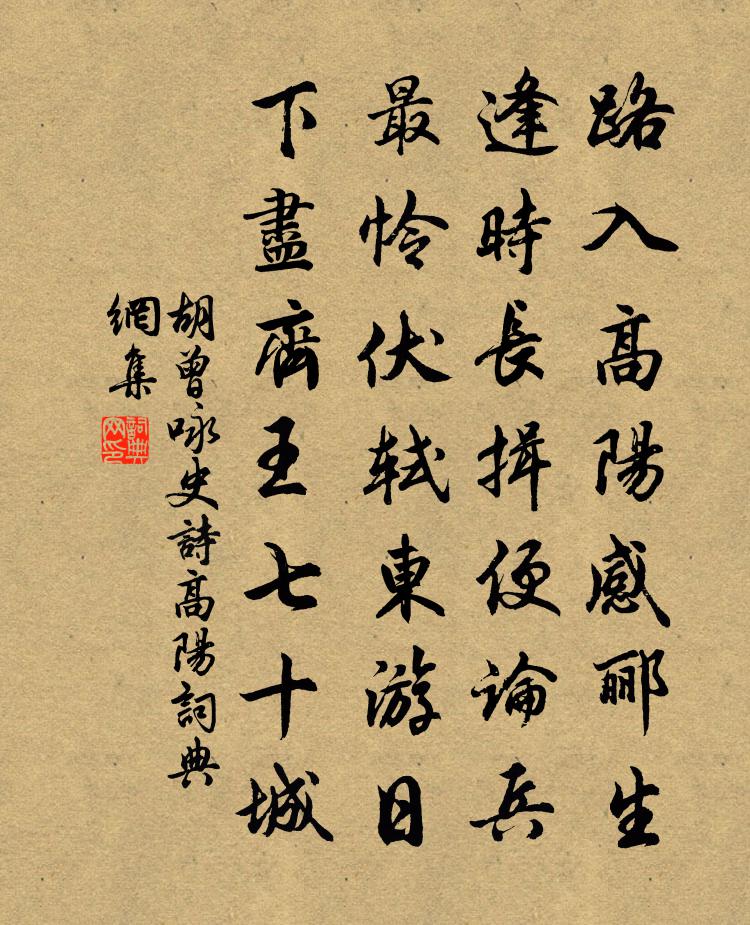 路入高陽感酈生
逢時長揖便論兵
最怜伏軾東游日
下盡齊王七十城
胡曾咏史詩高陽詞典
網集
詞典
网印